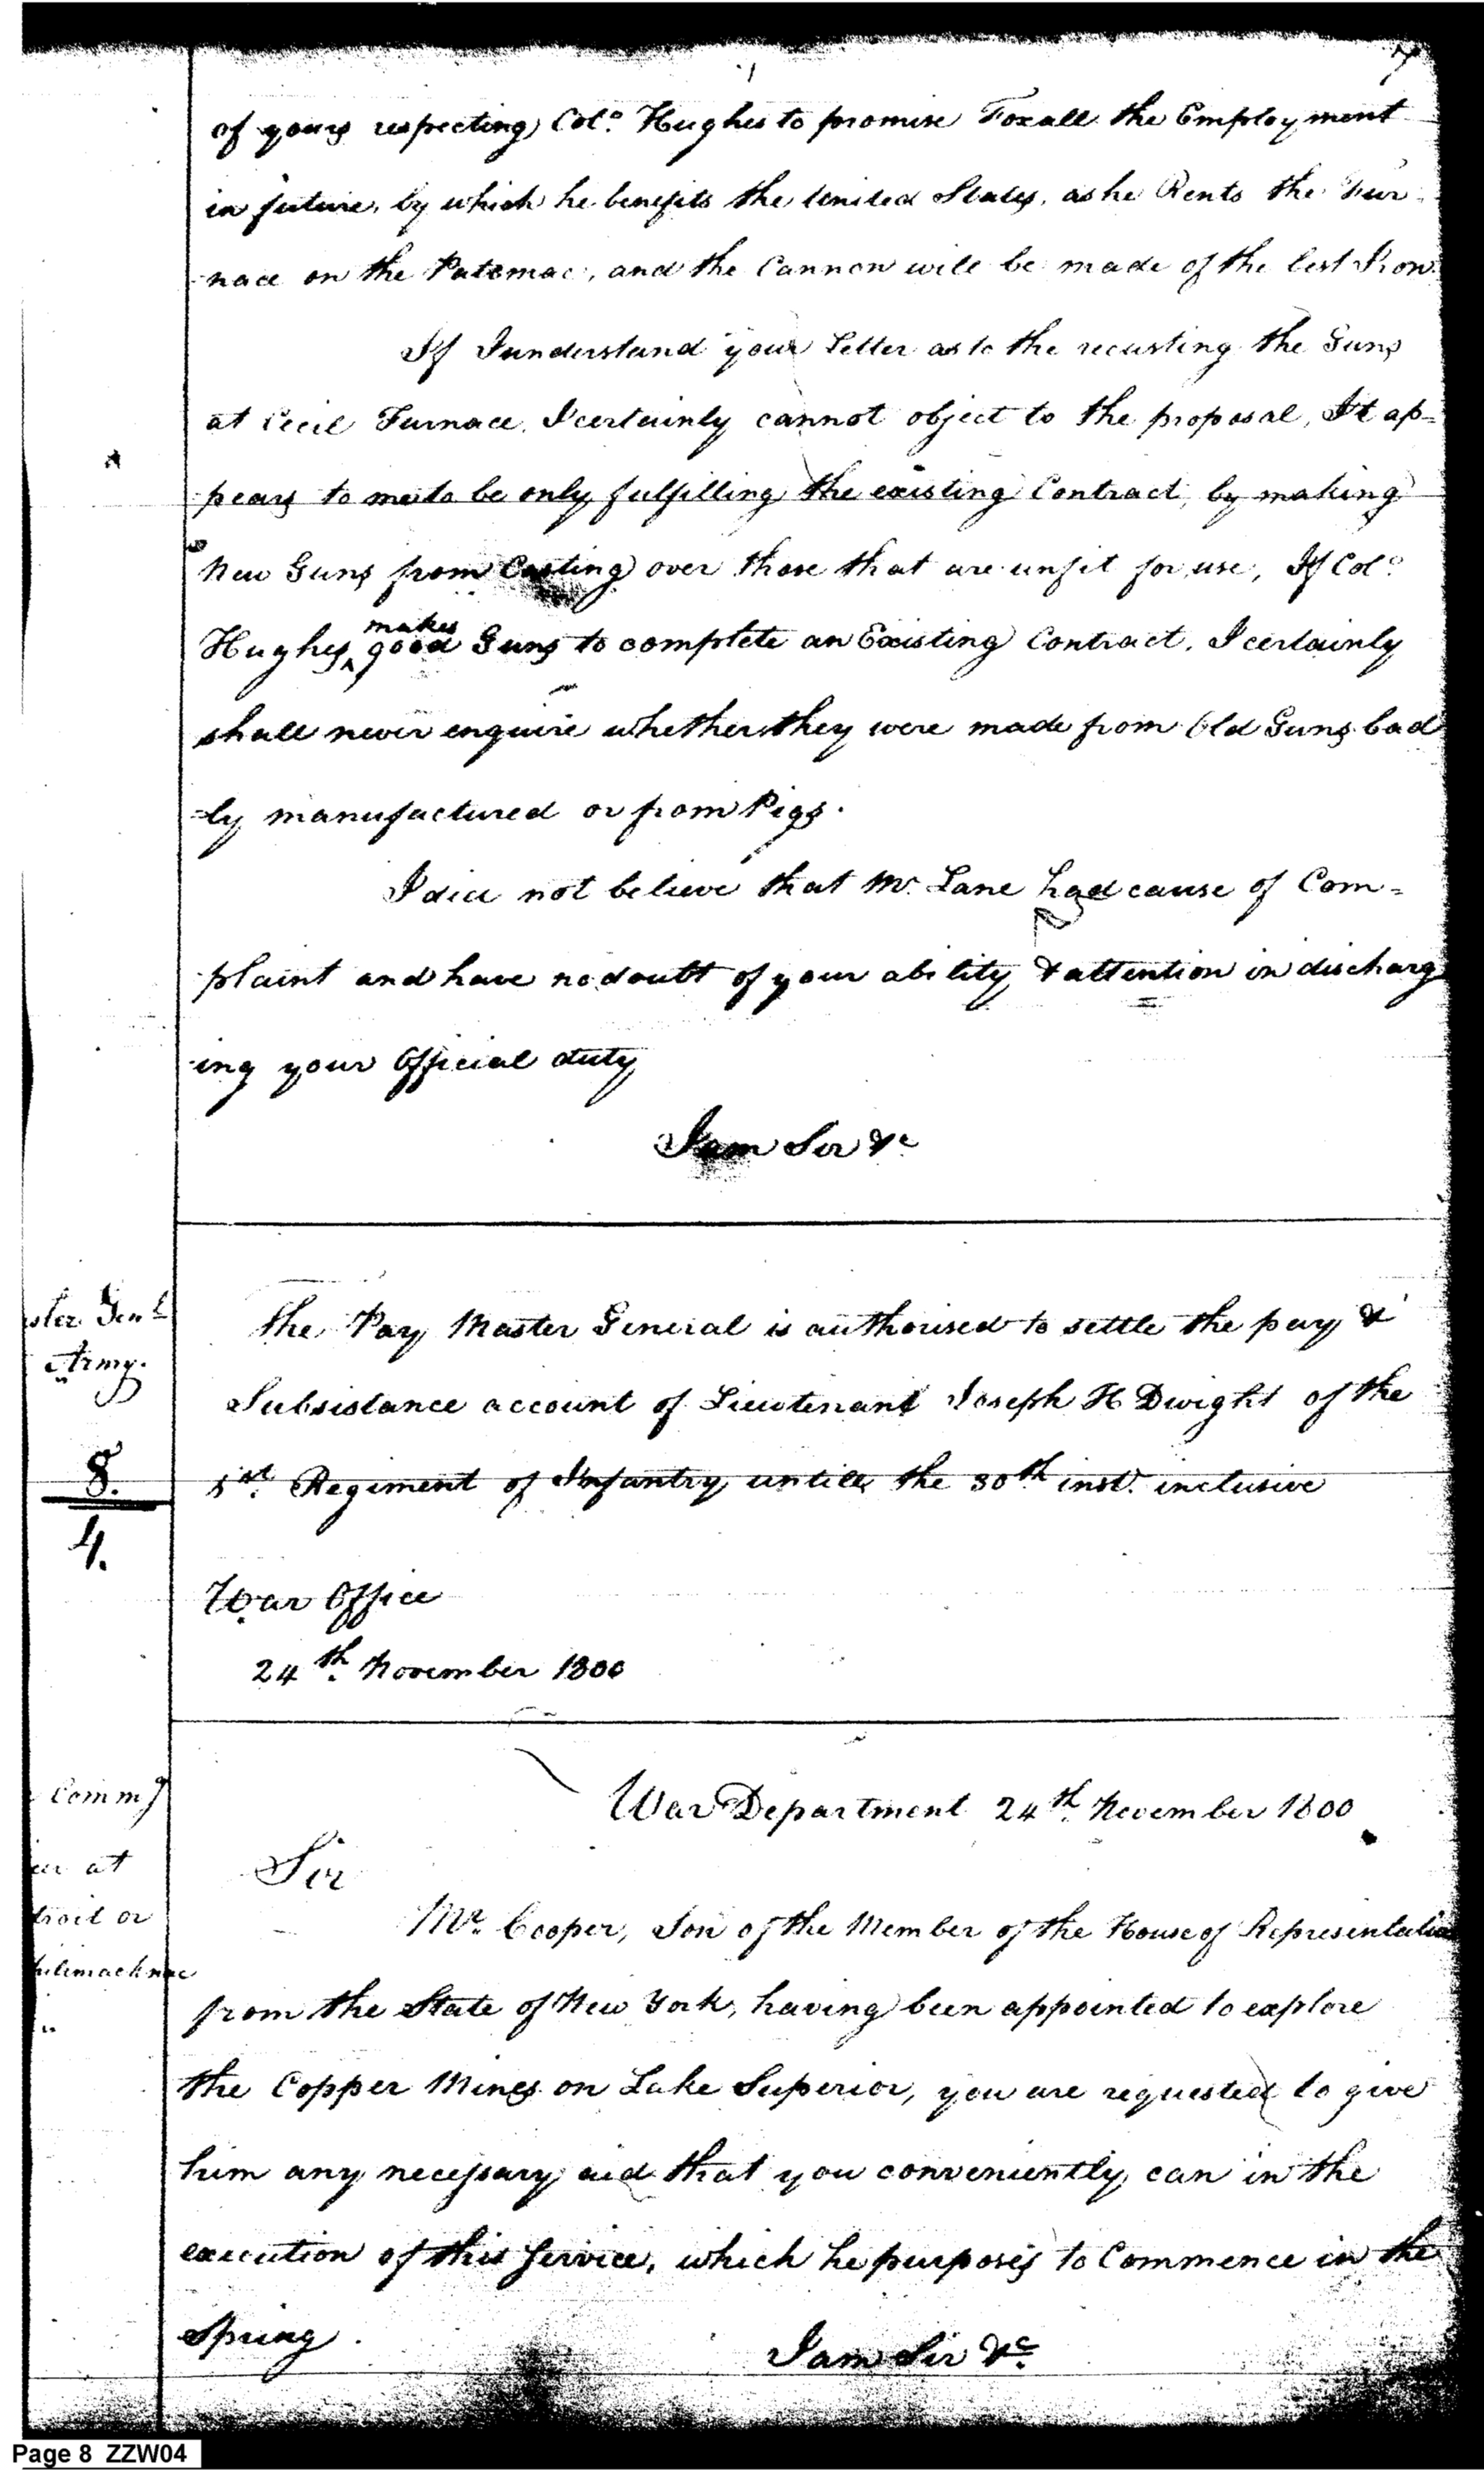 7
of yours respecting Col.º Hughes to promise Foxall the Employment
in future, by which he benefits the United States, as he Rents the Fur-
-nace on the Patomac, and the Cannon will be made of the best Iron.
If I understand your Letter as to the recasting the Guns
at Cecil Furnace, I certainly cannot object to the proposal, It ap=
pears to me to be only fulfilling the existing Contract, by making
New Guns from Casting over those that are unfit for use, If Colº
makes
Hughes ^ good Guns to complete an Existing Contract, I certainly
shall never enquire whether they were made from Old Guns bad
-ly manufactured or from Pigs.
I did not believe that Mr. Lane had cause of Com=
plaint and have no doubt of your ability & attention in discharg
ing your Official duty
I am Sir &c
ster Genl
Army.
8.
4.
The Pay Master General is authorised to settle the pay &
Subsistance account of Lieutenant Joseph H Dwight of the
1st. Regiment of Infantry untill the 30th inst. inclusive
War Office
24th. November 1800
Comm g
er at
troit or
hilimacknac
War Department 24th. November 1800
Sir
Mr. Cooper, Son of the Member of the House of Representativ
from the State of New York, having been appointed to explore
the Copper Mines on Lake Superior, you are requested to give
him any necessary aid that you conveniently can in the
execution of this Service, which he purposes to Commence in the
Spring.
I am Sir &c.
Page 8 ZZW04